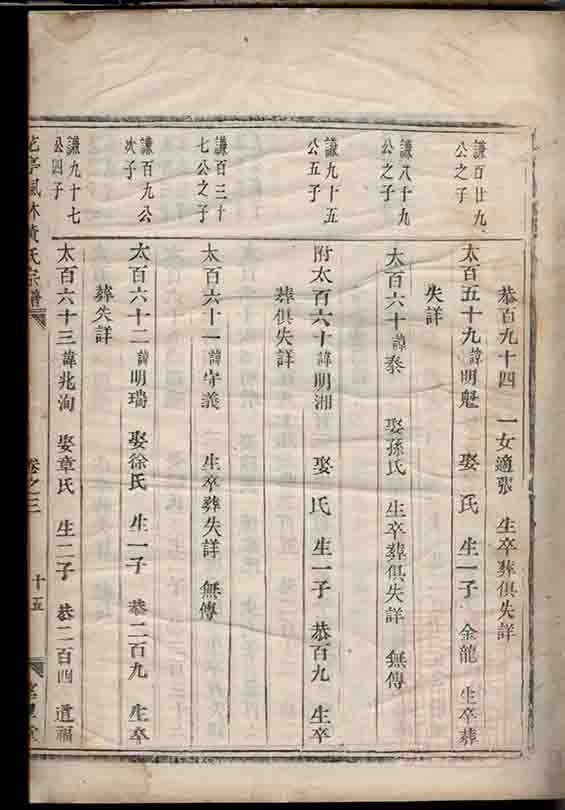 恭百九十四　一女適張　生卒葬俱失詳
謙百廿九
公之子
太百五十九諱明魁　娶　氏　生一子　金龍　生卒葬
失詳
謙八十九
公之子
太百六十諱泰　娶孫氏　生卒葬俱失詳　無傳
謙九十五
公五子
附太百六十諱明湘　娶　氏　生一子　恭百九　生卒
葬俱失詳
謙百三十
七公之子
太百六十一諱守義　生卒葬失詳　無傳
謙百九公
次子
太百六十二諱明瑞　娶徐氏　生一子　恭二百九　生卒
葬失詳
謙九十七
公四子
太百六十三諱兆洵　娶章氏　生二子　恭二百四　道福
亭風林黃氏宗譜　卷之三　十五